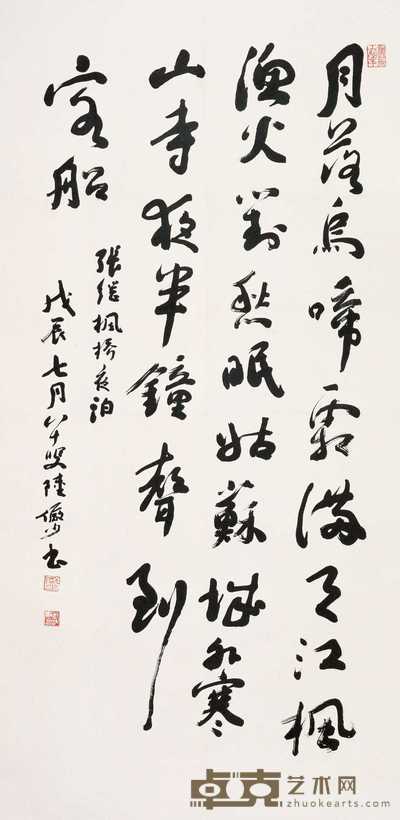 月落烏啼霜滿天江楓
漁火對愁眠姑蘇城外寒
山寺夜半鐘聲到
客船
張継楓橋夜泊
戊辰七月八十叟陸儼少書
卓克艺术网
zhuokearts.com